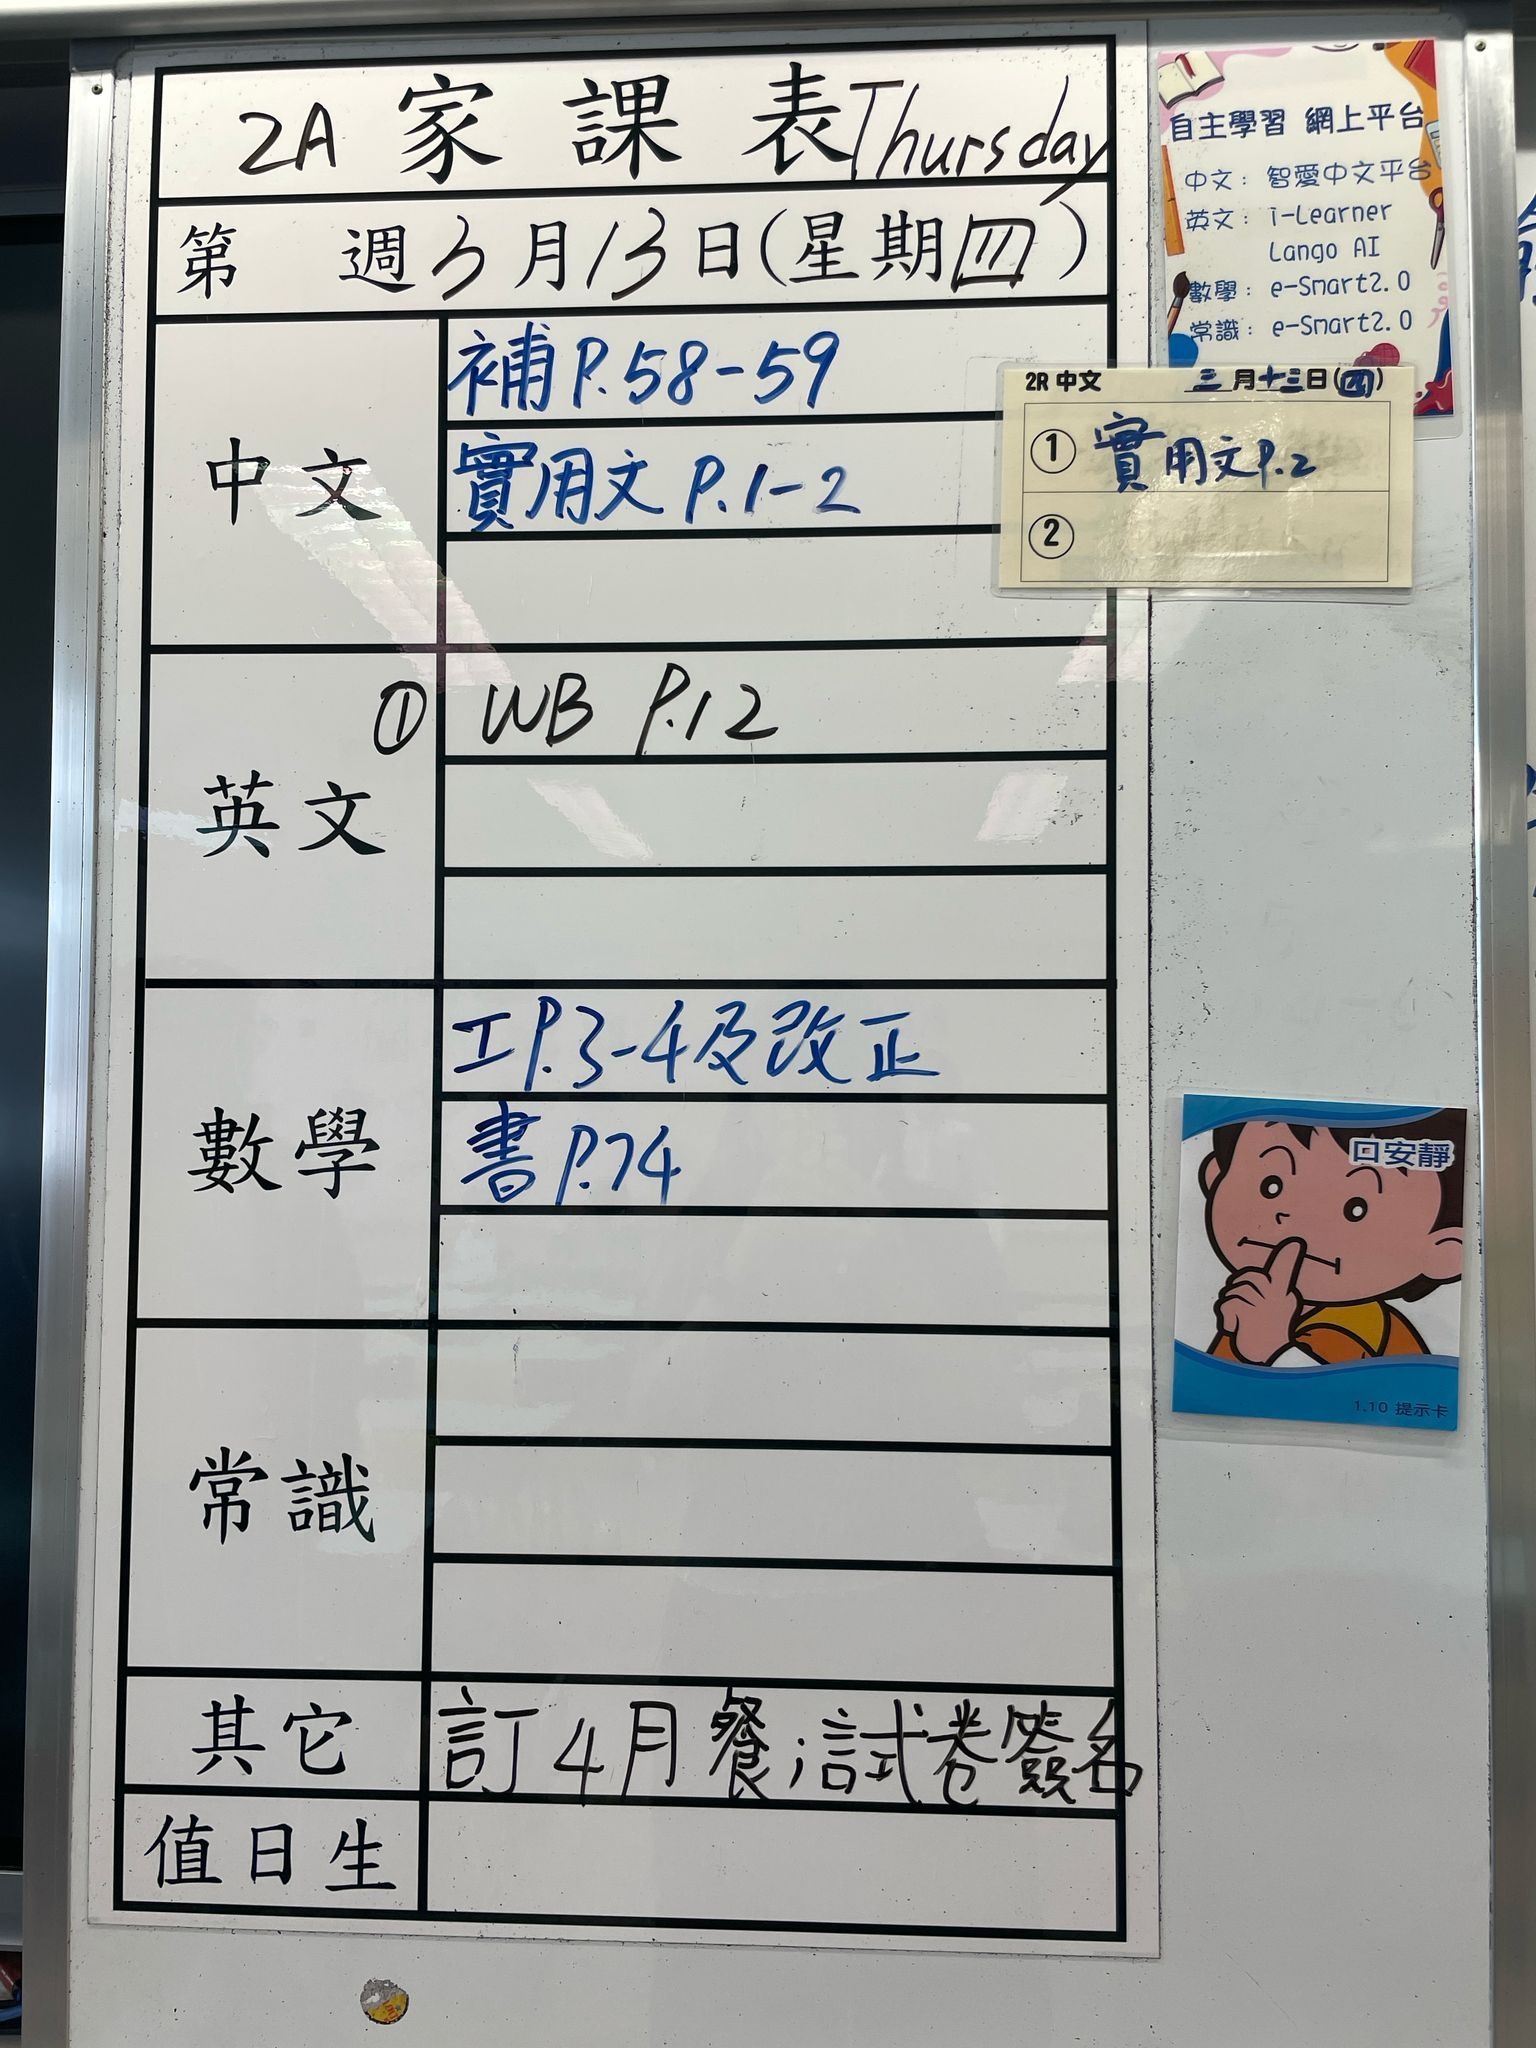 2A 家課表 Thursday
第 週 3月13日(星期四)
中文
補 P.58-59
實用文 P.1-2
英文
① WB P.12
數學
工P.3-4及改正
書P.74
常識
其它
訂4月餐;試卷簽名
值日生
自主學習 網上平台
中文: 智愛中文平台
英文: i-Learner
Lango AI
數學: e-Smart2.0
常識: e-Smart2.0
2R 中文 三月十三日(四)
① 實用文P.2
②
口安靜
1.10 提示卡